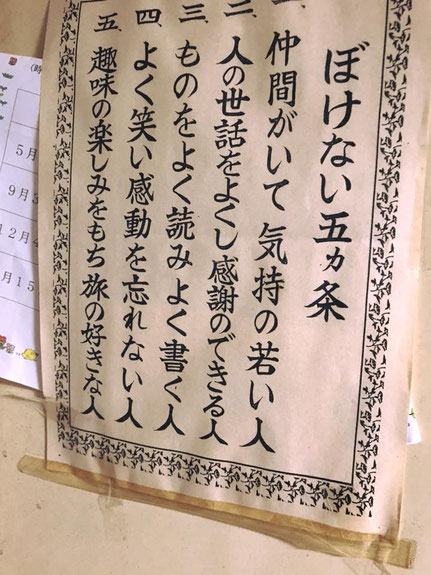 ぼけない五ヵ条
一、仲間がいて気持の若い人
二、人の世話をよくし感謝のできる人
三、ものをよく読みよく書く人
四、よく笑い感動を忘れない人
五、趣味の楽しみをもち旅の好きな人
(時
5月
9月3
2月4
月15